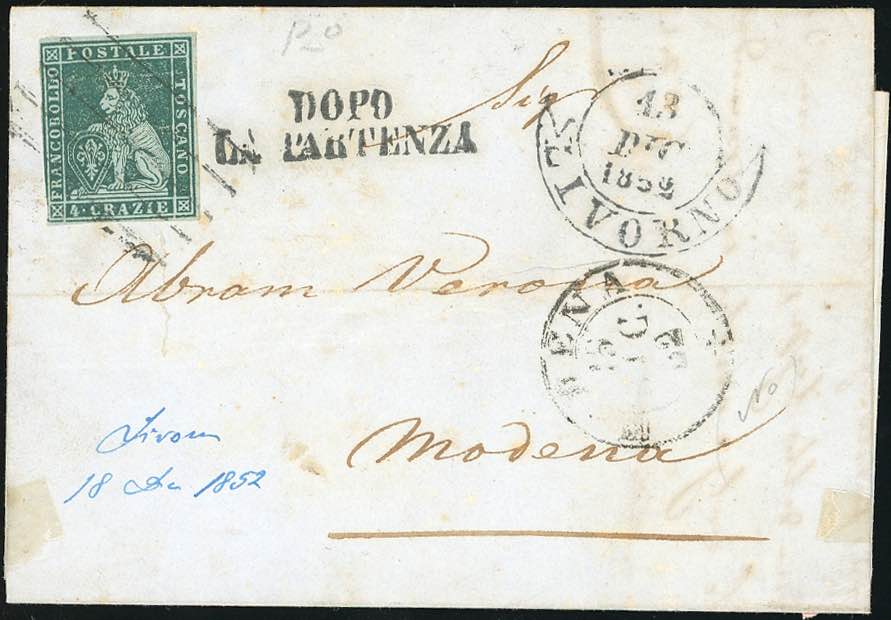 FRANCOBOLLO POSTALE TOSCANO
4·CRAZIE
DOPO
LA PARTENZA
Sig
LIVORNO
18
DIC
1852
Abram Verona
Modena
18 De 1852
No